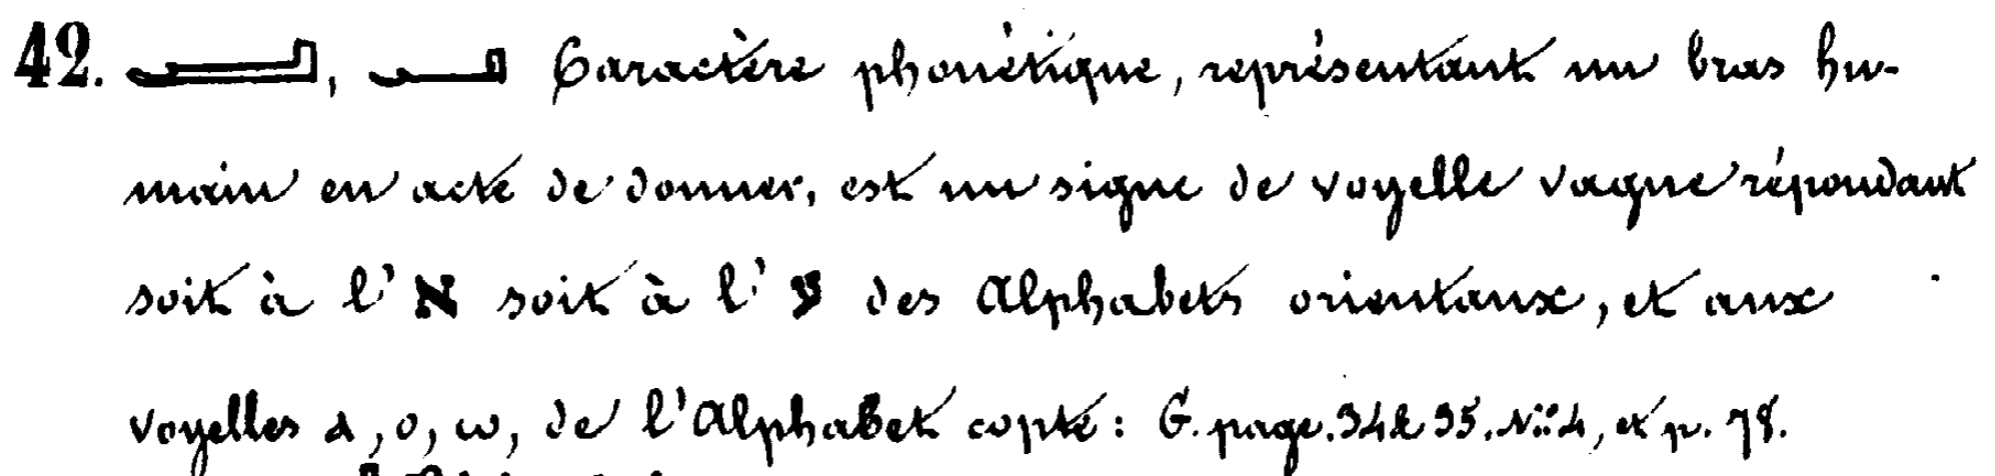 42. 𓂝, 𓂝 Caractère phonétique, représentant un bras hu-
main en acte de donner, est un signe de voyelle vague répondant
soit à l'א soit à l'ע des Alphabets orientaux, et aux
voyelles ⲁ, ⲟ, ⲱ, de l'Alphabet copte : G. page. 34 & 35. N.º 4, et p. 78.